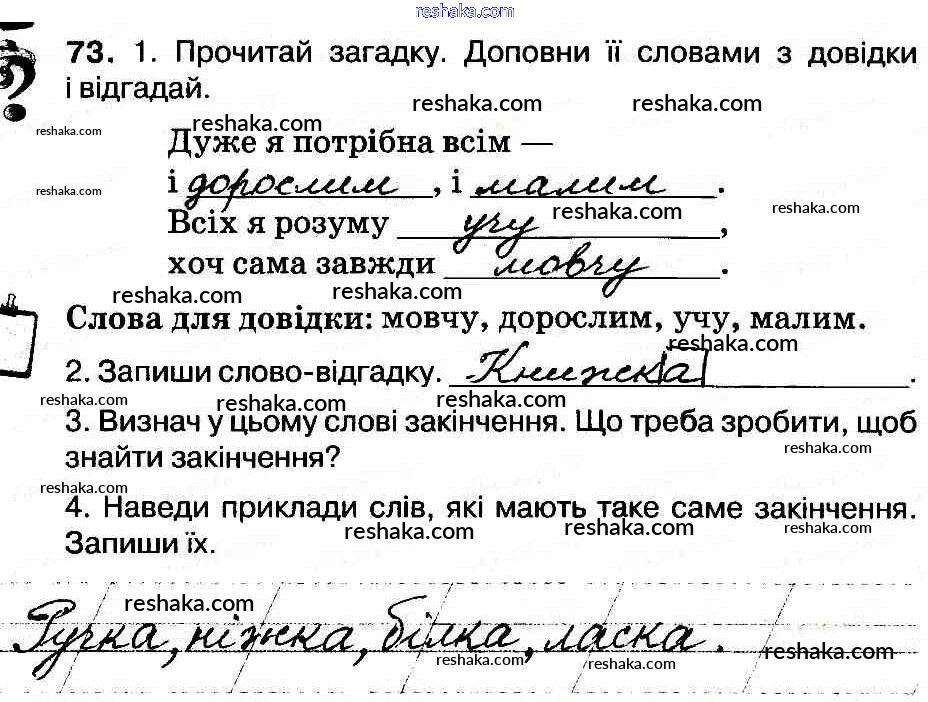 reshaka.com
73. 1. Прочитай загадку. Доповни її словами з довідки
і відгадай.
reshaka.com reshaka.com
reshaka.com reshaka.com
Дуже я потрібна всім —
reshaka.com
і дорослим, і малим.
reshaka.com reshaka.com
Всіх я розуму учу,
хоч сама завжди мовчу.
reshaka.com reshaka.com
Слова для довідки: мовчу, дорослим, учу, малим.
reshaka.com
2. Запиши слово-відгадку. Книжка.
reshaka.com reshaka.com reshaka.com
3. Визнач у цьому слові закінчення. Що треба зробити, щоб
reshaka.com
знайти закінчення?
reshaka.com
4. Наведи приклади слів, які мають таке саме закінчення.
reshaka.com reshaka.com reshaka.com
Запиши їх.
reshaka.com
Ручка, ніжка, білка, ласка.
reshaka.com reshaka.com reshaka.com